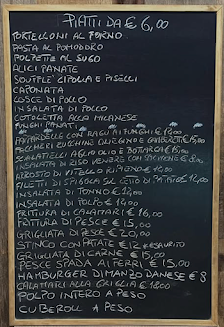 PIATTI DA € 6,00
TORTELLONI AL FORNO
PASTA AL POMODORO
POLPETTE AL SUGO
ALICI PANATE
SOUFFLE' CIPOLLA E PISELLI
CAPONATA
COSCE DI POLLO
INSALATA DI POLLO
COTOLETTA ALLA MILANESE
FUNGHI PANATI
PAPPARDELLE CON RAGU AI FUNGHI €
PACCHERI ZUCCHINE € 15,00
SCIALATIELLI AGLIO OLIO E BOTTARGA € 15,00
INSALATA DI RISO VENERE CON SALMONE € 8,00
ARROSTO DI VITELLO RIPIENO € 12,00
FILETTI DI SPIGOLA SU LETTO DI PATATE € 12,00
INSALATA DI TONNO € 12,00
INSALATA DI POLPO € 14,00
FRITTURA DI CALAMARI € 16,00
FRITTURA DI PESCE € 15,00
GRIGLIATA DI PESCE € 20,00
STINCO CON PATATE € 12 ESAURITO
GRIGLIATA DI CARNE € 15,00
PESCE SPADA AI FERRI € 15,00
HAMBURGER DI MANZO DANESE € 8
CALAMARI ALLA GRIGLIA € 18,00
POLPO INTERO A PESO
CUBEROLL A PESO